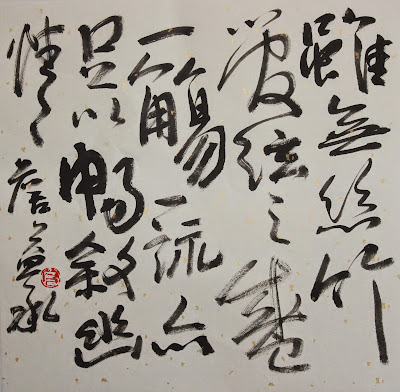 雖無絲竹
管絃之盛
一觴一詠亦
足以暢敘幽
情
詹